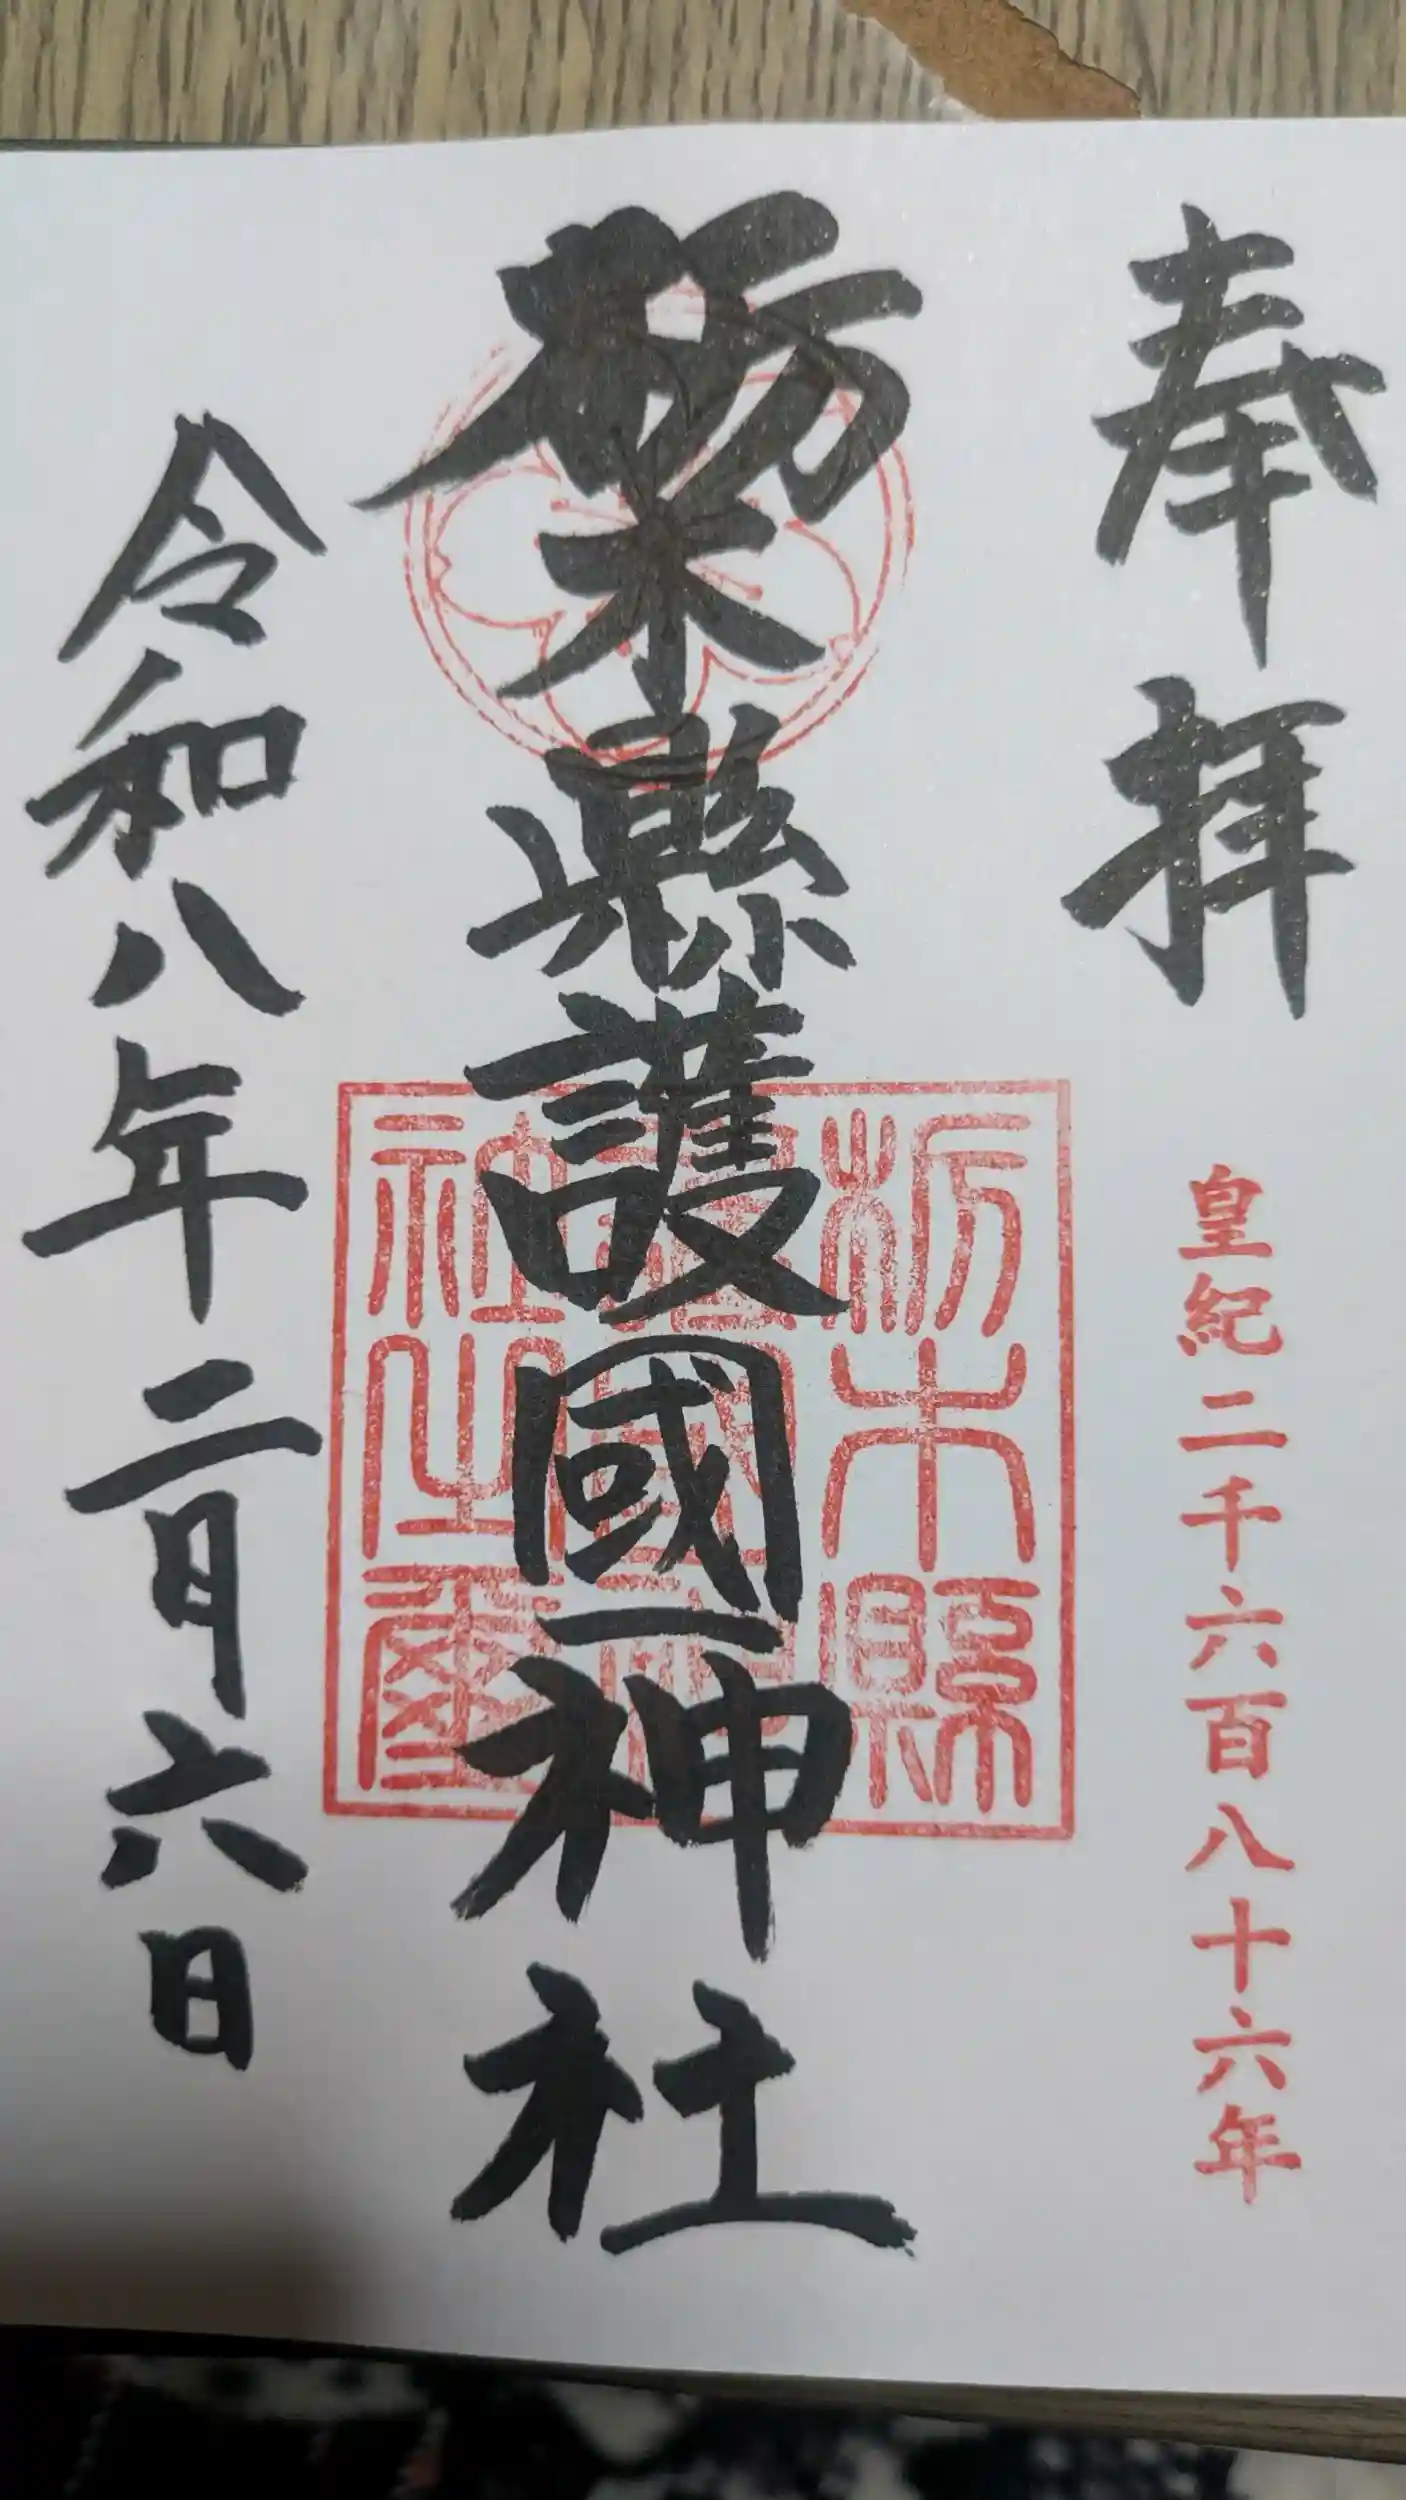 奉拝
皇紀二千六百八十六年
栃木縣護國神社
栃木縣
護國神
社之璽
令和八年二月六日